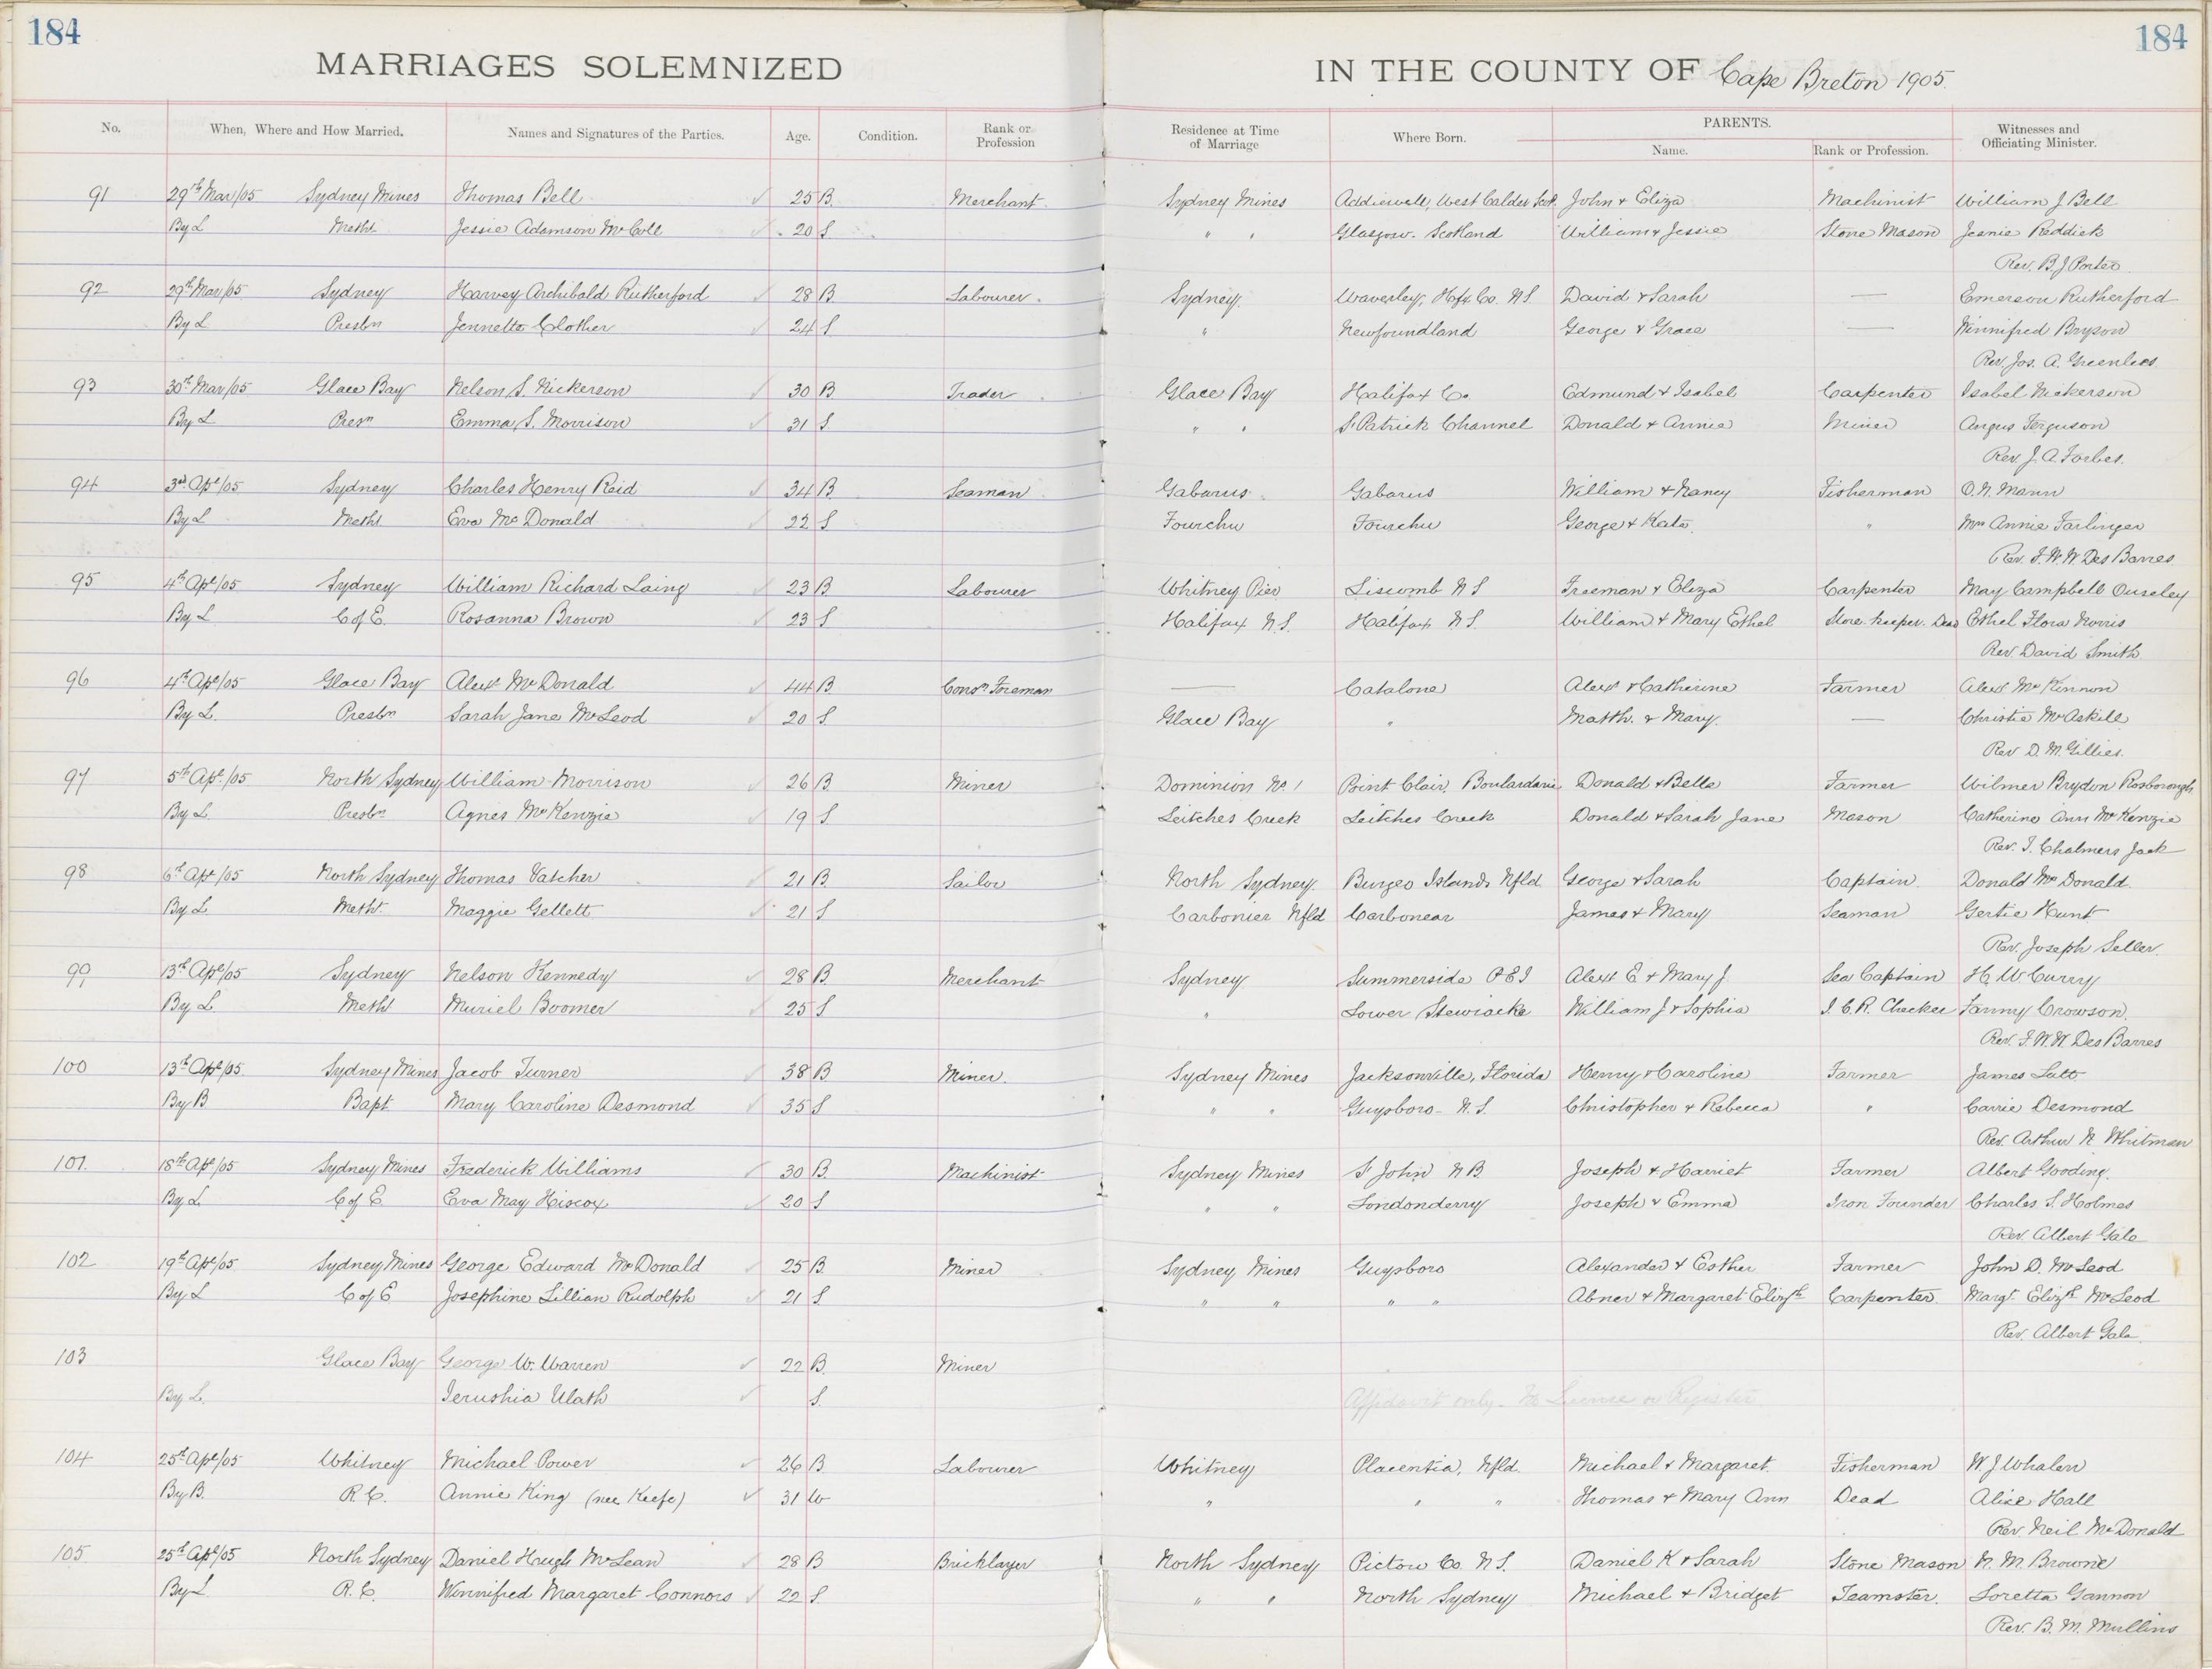 184 184
MARRIAGES SOLEMNIZED IN THE COUNTY OF Cape Breton 1905.
No. When, Where and How Married. Names and Signatures of the Parties. Age. Condition. Rank or Profession Residence at Time of Marriage Where Born. PARENTS. Name. Rank or Profession. Witnesses and Officiating Minister.
91 29th Mar/05 Sydney Mines Thomas Bell 25 B. Merchant Sydney Mines Addiewell, West Calder Scot. John & Eliza Machinist William J Bell
By L Meth. Jessie Adamson McColl 20 S. " " Glasgow. Scotland William & Jessie Stone Mason Jeanie Reddick
Rev. B. J Porter
92 29th Mar/05 Sydney Harvey Archibald Rutherford 28 B. Labourer Sydney. Waverley, Hfx. Co. N.S. David & Sarah — Emerson Rutherford
By L Presbn Jennette Clother 24 S " Newfoundland George & Grace — Winnifred Bryson
Rev. Jos. A. Greenlees
93 30th Mar/05 Glace Bay Nelson S. Nickerson 30 B Trader Glace Bay Halifax Co. Edmund & Isabel Carpenter Isabel Nickerson
By L Presn Emma S. Morrison 31 S " " St Patrick Channel Donald & Annie Miner Angus Ferguson
Rev. J. A. Forbes.
94 3rd Apl/05 Sydney Charles Henry Reid 34 B. Seaman Gabarus Gabarus William & Nancy Fisherman O. N. Mann
By L Meth Eva McDonald 22 S Fourchu Fourchu George & Kate. " Mrs Annie Farlinger
Rev. F. W. W. Des Barres
95 4th Apl/05 Sydney William Richard Laing 23 B. Labourer Whitney Pier Liscomb N S Freeman & Eliza Carpenter May Campbell Ouseley
By L C of E. Rosanna Brown 23 S Halifax N.S. Halifax N S. William & Mary Ethel Store. keeper. Dead Ethel Flora Norris
Rev. David Smith
96 4th Apl/05 Glace Bay Alexr McDonald 44 B. Foreman — Catalone Alexr & Catherine Farmer Alexr McKinnon
By L. Presbn Sarah Jane McLeod 20 S. Glace Bay " Matth. & Mary. — Christie McAskill
Rev D. M. Gillies.
97 5th Apl./05 North Sydney William Morrison 26 B. Miner Dominion No 1 Point Clair, Boulardarie Donald & Belle Farmer Wilmer Brydon Rosborough
By L Presbn Agnes McKenzie 19 S. Leitches Creek Leitches Creek Donald & Sarah Jane Mason Catherine Ann McKenzie
Rev. T. Chalmers Jack
98 6th Apl/05 North Sydney Thomas Vatcher 21 B. Sailor North Sydney. Burgeo Islands Nfld. George & Sarah Captain. Donald McDonald.
By L Meth. Maggie Gellett 21 S Carbonier Nfld Carbonear James & Mary Seaman Gertie Hunt
Rev. Joseph Seller.
99 13th Apl/05 Sydney Nelson Kennedy 28 B. Merchant Sydney Summerside P E I Alexr E & Mary J. Sea Captain H. W. Curry
By L. Meth Muriel Boomer 25 S " Lower Stewiacke William J & Sophia I. C. R. Checker Fanny Crowson.
Rev. F. W. W Des Barres
100 13th Apl/05. Sydney Mines Jacob Turner 38 B. Miner. Sydney Mines Jacksonville, Florida Henry & Caroline Farmer James
By B Bapt. Mary Caroline Desmond 35 S " " Guysboro- N. S. Christopher & Rebecca " Carrie Desmond
Rev. Arthur N Whitman
101. 18th Apl/05 Sydney Mines Frederick Williams 30 B. Machinist Sydney Mines St John N B. Joseph & Harriet Farmer Albert Gooding.
By L C of E Eva May Hiscox 20 S " " Londonderry Joseph & Emma Iron Founder Charles S. Holmes
Rev. Albert Gale
102 19th Apl/05 Sydney Mines George Edward McDonald 25 B. Miner Sydney Mines Guysboro Alexander & Esther Farmer John D. McLeod
By L C of E Josephine Lillian Rudolph 21 S " " " " Abner & Margaret Elizth Carpenter. Margt Elizth McLeod
Rev. Albert Gale.
103 Glace Bay George W. Warren 22 B. Miner
By L. Jerushia Ulath S. Affidavit only. No License or Register
104 25th Apl/05 Whitney Michael Power 26 B Labourer Whitney Placentia, Nfld. Michael & Margaret. Fisherman W. J Whalen
By B. R. C. Annie King (nee Keefe) 31 W " " " Thomas & Mary Ann Dead Alice Hall
Rev Neil McDonald
105. 25th Apl/05 North Sydney Daniel Hugh McLean 28 B Bricklayer North Sydney Pictou Co. N S. Daniel K & Sarah Stone Mason N. M. Browne
By L R. C. Winnifred Margaret Connors 22 S. " " North Sydney Michael & Bridget Teamster. Loretta Gannon
Rev. B. M. Mullins